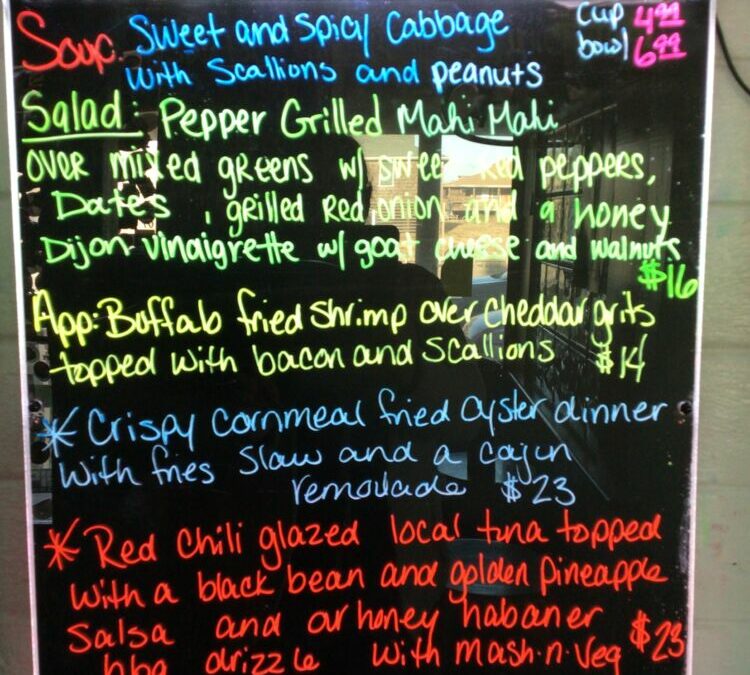 Soup: Sweet and Spicy Cabbage cup 4.99
with Scallions and peanuts bowl 6.99
Salad: Pepper Grilled Mahi Mahi
over mixed greens w/ sweet red peppers,
Dates, grilled Red onion and a honey
Dijon Vinaigrette w/ goat cheese and walnuts
$16
App: Buffalo fried shrimp over cheddar grits
topped with bacon and scallions $14
* Crispy cornmeal fried oyster dinner
with fries slaw and a cajun
remoulade $23
* Red Chili glazed local tuna topped
with a black bean and golden pineapple
Salsa and a honey habaner
bbq drizzle with mash-n-veg $23